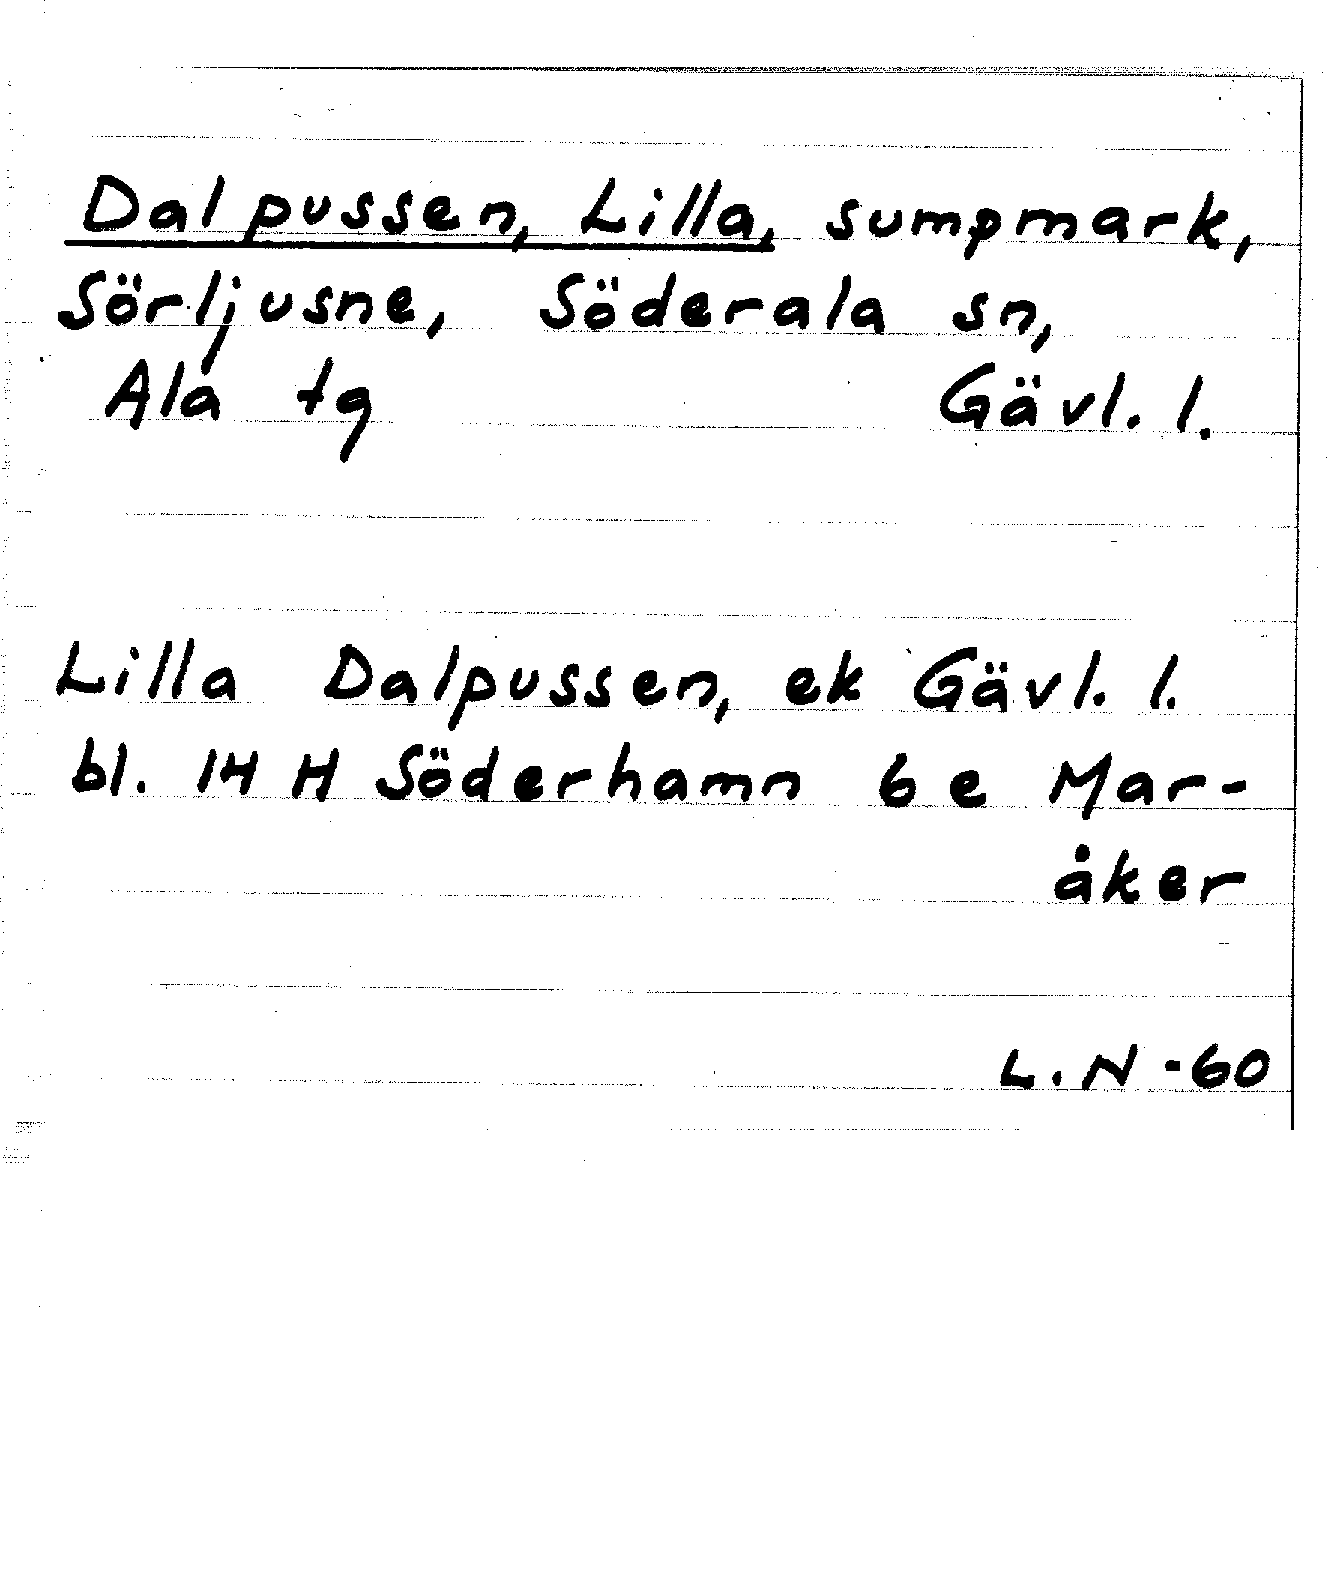 Dalpussen, Lilla, sumpmark,
Sörljusne, Söderala sn,
Ala tg Gävl. l.
Lilla Dalpussen, ek Gävl. l.
bl. 14 H Söderhamn 6 e Mar-
åker
L. N -60